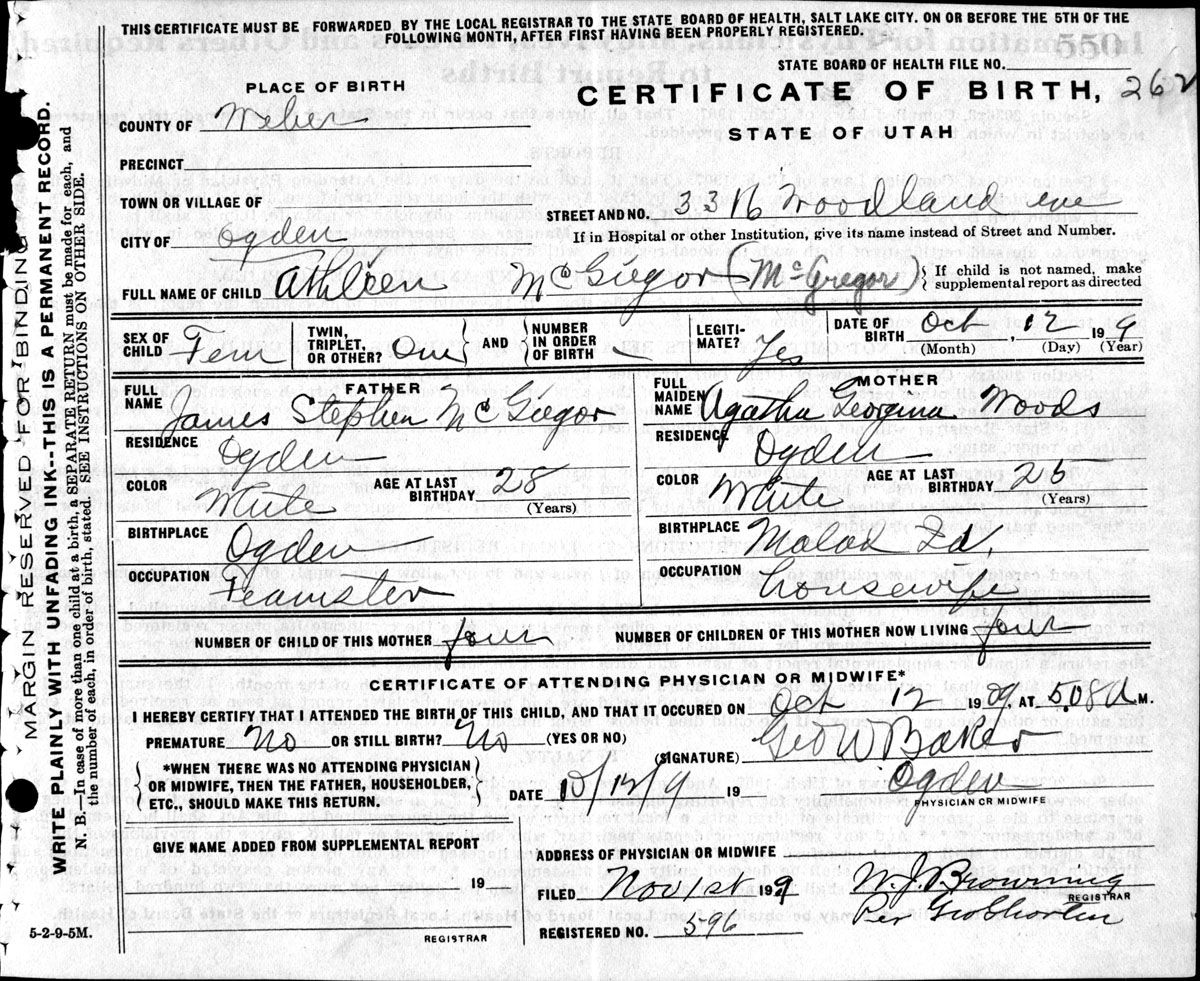 THIS CERTIFICATE MUST BE FORWARDED BY THE LOCAL REGISTRAR TO THE STATE BOARD OF HEALTH, SALT LAKE CITY. ON OR BEFORE THE 5TH OF THE
FOLLOWING MONTH, AFTER FIRST HAVING BEEN PROPERLY REGISTERED.
STATE BOARD OF HEALTH FILE NO.
PLACE OF BIRTH
CERTIFICATE OF BIRTH, 262
STATE OF UTAH
COUNTY OF Weber
PRECINCT
TOWN OR VILLAGE OF
STREET AND NO. Woodland ave
CITY OF Ogden
If in Hospital or other Institution, give its name instead of Street and Number.
FULL NAME OF CHILD Athleen McGregor (McGregor)
If child is not named, make
supplemental report as directed
SEX OF CHILD Fem
TWIN, TRIPLET, OR OTHER? One
AND
NUMBER IN ORDER OF BIRTH
LEGITI-MATE? Yes
DATE OF BIRTH Oct, 12 1909
(Month) (Day) (Year)
FATHER
FULL NAME James Stephen McGregor
RESIDENCE Ogden
COLOR White
AGE AT LAST BIRTHDAY 28
(Years)
BIRTHPLACE Ogden
OCCUPATION Teamster
MOTHER
FULL MAIDEN NAME Agatha Georgina Woods
RESIDENCE Ogden
COLOR White
AGE AT LAST BIRTHDAY
(Years)
BIRTHPLACE Malad Id.
OCCUPATION housewife
NUMBER OF CHILD OF THIS MOTHER four
NUMBER OF CHILDREN OF THIS MOTHER NOW LIVING four
CERTIFICATE OF ATTENDING PHYSICIAN OR MIDWIFE*
I HEREBY CERTIFY THAT I ATTENDED THE BIRTH OF THIS CHILD, AND THAT IT OCCURED ON Oct 12 1909, AT. 508 A M.
PREMATURE No OR STILL BIRTH? No (YES OR NO)
(SIGNATURE) Geo W Baker
Ogden
PHYSICIAN OR MIDWIFE
*WHEN THERE WAS NO ATTENDING PHYSICIAN
OR MIDWIFE, THEN THE FATHER, HOUSEHOLDER,
ETC., SHOULD MAKE THIS RETURN.
DATE 10/12/9 19
GIVE NAME ADDED FROM SUPPLEMENTAL REPORT
19
REGISTRAR
ADDRESS OF PHYSICIAN OR MIDWIFE
FILED Nov 1st 1909
W. J. Browning
REGISTRAR
Per
REGISTERED NO. 596
5-2-9-5M.
MARGIN RESERVED FOR BINDING
WRITE PLAINLY WITH UNFADING INK--THIS IS A PERMANENT RECORD.
N. B.—In case of more than one child at a birth, a SEPARATE RETURN must be made for each, and
the number of each, in order of birth, stated. SEE INSTRUCTIONS ON OTHER SIDE.